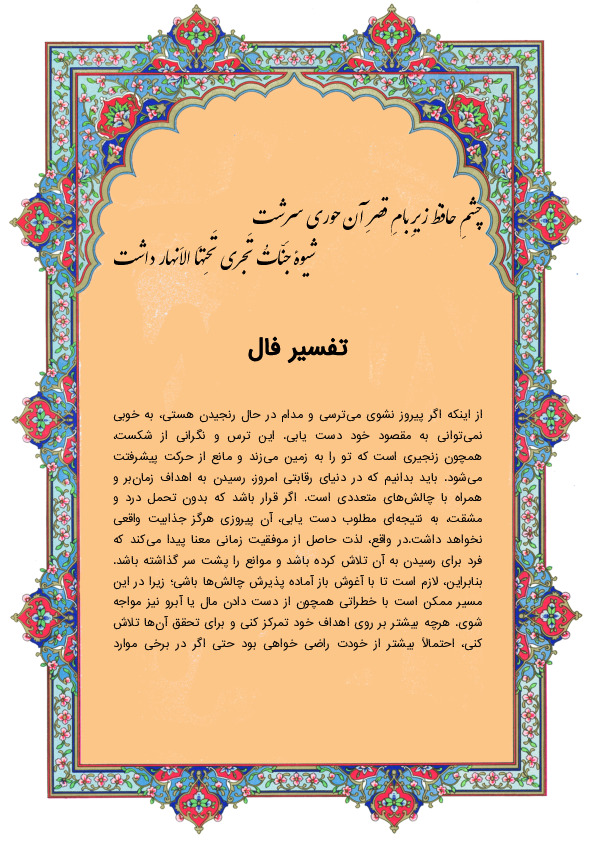 چشمِ حافظ زیرِ بامِ قصرِ آن حوری سرشت
شیوهٔ جَنّاتُ تَجری تَحتِهَا الاَنهار داشت
تفسیر فال
از اینکه اگر پیروز نشوی می‌ترسی و مدام در حال رنجیدن هستی، به خوبی
نمی‌توانی به مقصود خود دست یابی. این ترس و نگرانی از شکست،
همچون زنجیری است که تو را به زمین می‌زند و مانع از حرکت پیشرفتت
می‌شود. باید بدانیم که در دنیای رقابتی امروز، رسیدن به اهداف زمان‌بر و
همراه با چالش‌های متعددی است. اگر قرار باشد که بدون تحمل درد و
مشقت، به نتیجه‌ای مطلوب دست یابی، آن پیروزی هرگز جذابیت واقعی
نخواهد داشت.در واقع، لذت حاصل از موفقیت زمانی معنا پیدا می‌کند که
فرد برای رسیدن به آن تلاش کرده باشد و موانع را پشت سر گذاشته باشد.
بنابراین، لازم است تا با آغوش باز آماده پذیرش چالش‌ها باشی؛ زیرا در این
مسیر ممکن است با خطراتی همچون از دست دادن مال یا آبرو نیز مواجه
شوی. هرچه بیشتر بر روی اهداف خود تمرکز کنی و برای تحقق آن‌ها تلاش
کنی، احتمالاً بیشتر از خودت راضی خواهی بود حتی اگر در برخی موارد